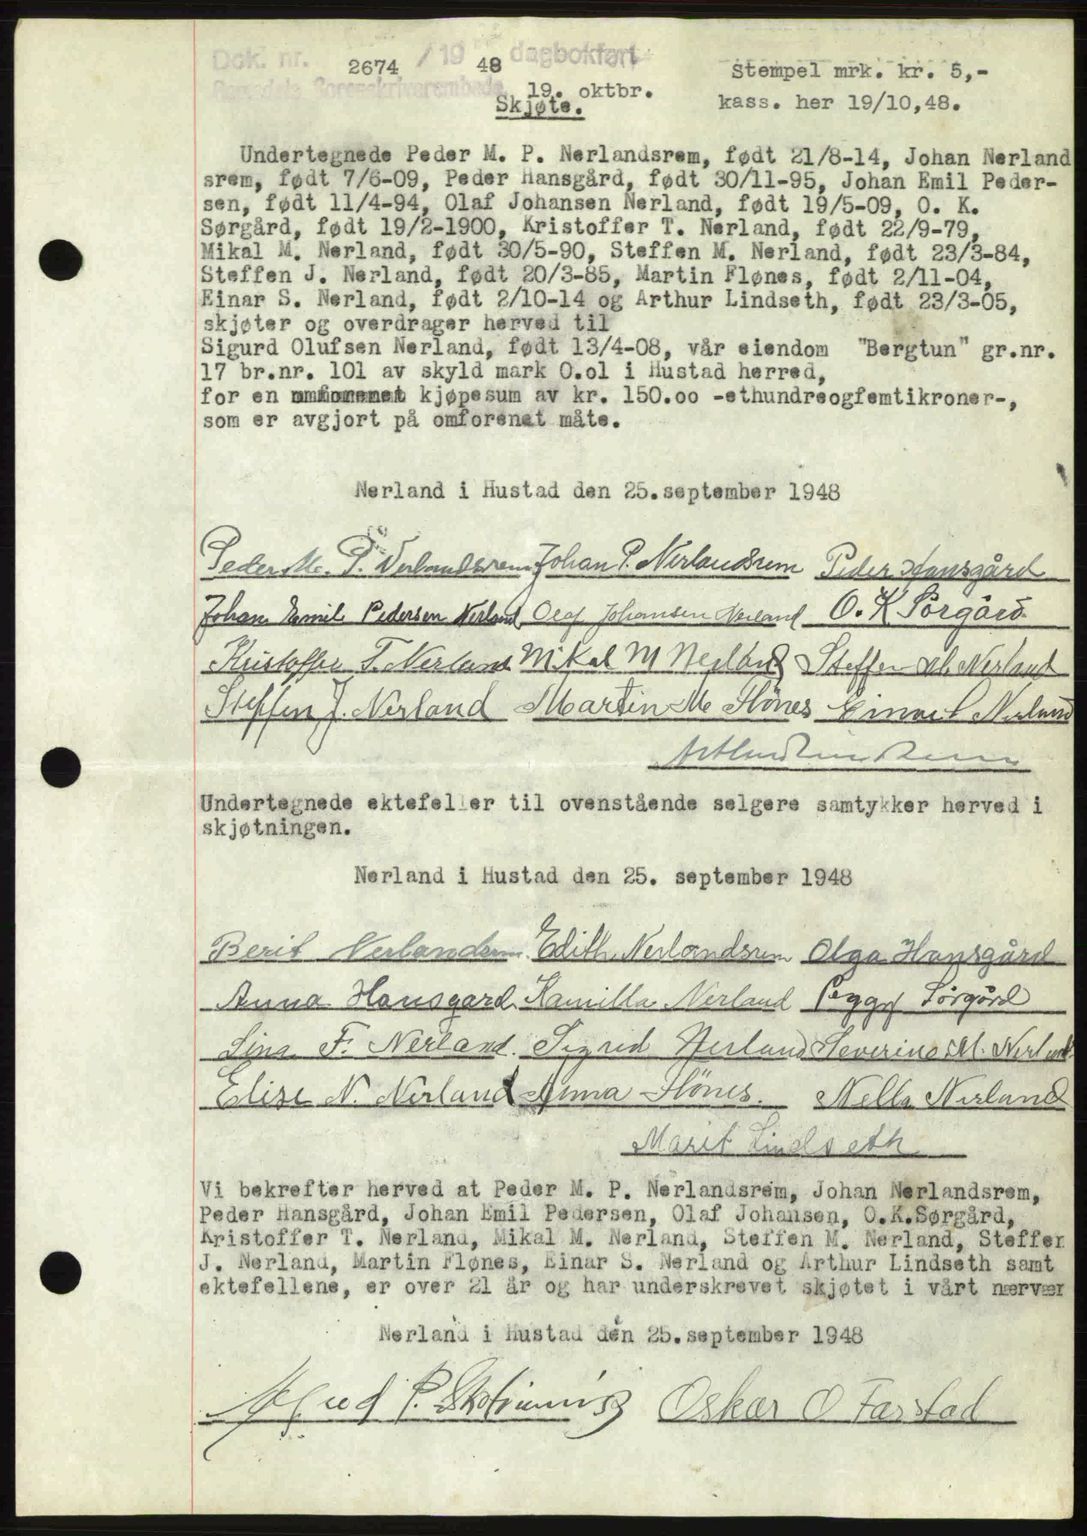 Dok. nr. 2674 / 19 48 dagbokført
Stempel mrk. kr. 5,-
19. oktbr.
kass. her 19/10,48.
Skjøte.
Undertegnede Peder M. P. Nerlandsrem, født 21/8-14, Johan Nerland
srem, født 7/6-09, Peder Hansgård, født 30/11-95, Johan Emil Peder-
sen, født 11/4-94, Olaf Johansen Nerland, født 19/5-09, O. K.
Sørgård, født 19/2-1900, Kristoffer T. Nerland, født 22/9-79,
Mikal M. Nerland, født 30/5-90, Steffen M. Nerland, født 23/3-84,
Steffen J. Nerland, født 20/3-85, Martin Flønes, født 2/11-04,
Einar S. Nerland, født 2/10-14 og Arthur Lindseth, født 23/3-05,
skjøter og overdrager herved til
Sigurd Olufsen Nerland, født 13/4-08, vår eiendom "Bergtun" gr.nr.
17 br.nr. 101 av skyld mark 0.01 i Hustad herred,
for en kjøpesum av kr. 150.oo -ethundreogfemtikroner-,
som er avgjort på omforenet måte.
Nerland i Hustad den 25.september 1948
Peder M. P. Nerlandsrem Johan P. Nerlandsrem Peder Hansgård
Johan Emil Pedersen Nerland Olaf Johansen Nerland O. K Sørgård
Kristoffer T. Nerland Mikal M Nerland Steffen M. Nerland
Steffen J. Nerland Martin M Flönes Einar S Nerland
Undertegnede ektefeller til ovenstående selgere samtykker herved i
skjøtningen.
Nerland i Hustad den 25. september 1948
Berit Nerlandsrem Edith Nerlandsrem Olga Hansgård
Anna Hansgard Kamilla Nerland Peggy Sørgård
Lina F. Nerland. Sigrid Nerland Severine M. Nerland
Elise N. Nerland Anna Flönes. Nella Nerland
Marit Lindseth
Vi bekrefter herved at Peder M. P. Nerlandsrem, Johan Nerlandsrem,
Peder Hansgård, Johan Emil Pedersen, Olaf Johansen, O.K.Sørgård,
Kristoffer T. Nerland, Mikal M. Nerland, Steffen M. Nerland, Steffen
J. Nerland, Martin Flønes, Einar S. Nerland og Arthur Lindseth samt
ektefellene, er over 21 år og har underskrevet skjøtet i vårt nærvær
Nerland i Hustad den 25.september 1948
P. Oskar O Farstad